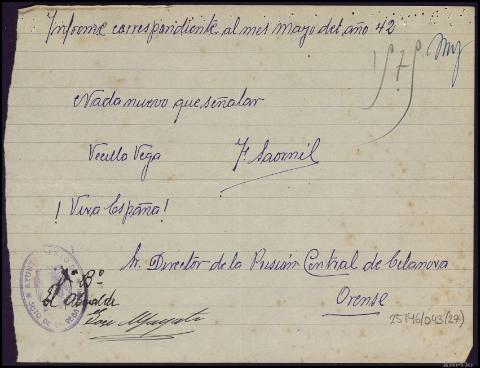 Informe correspondiente al mes mayo del año 42
Nada nuevo que señalar
Vecilla Vega F. Saornil
¡Viva España!
Sr. Director de la Prisión Central de Celanova
Orense
Vº Bº
El Alcalde
José
25146/043(27)